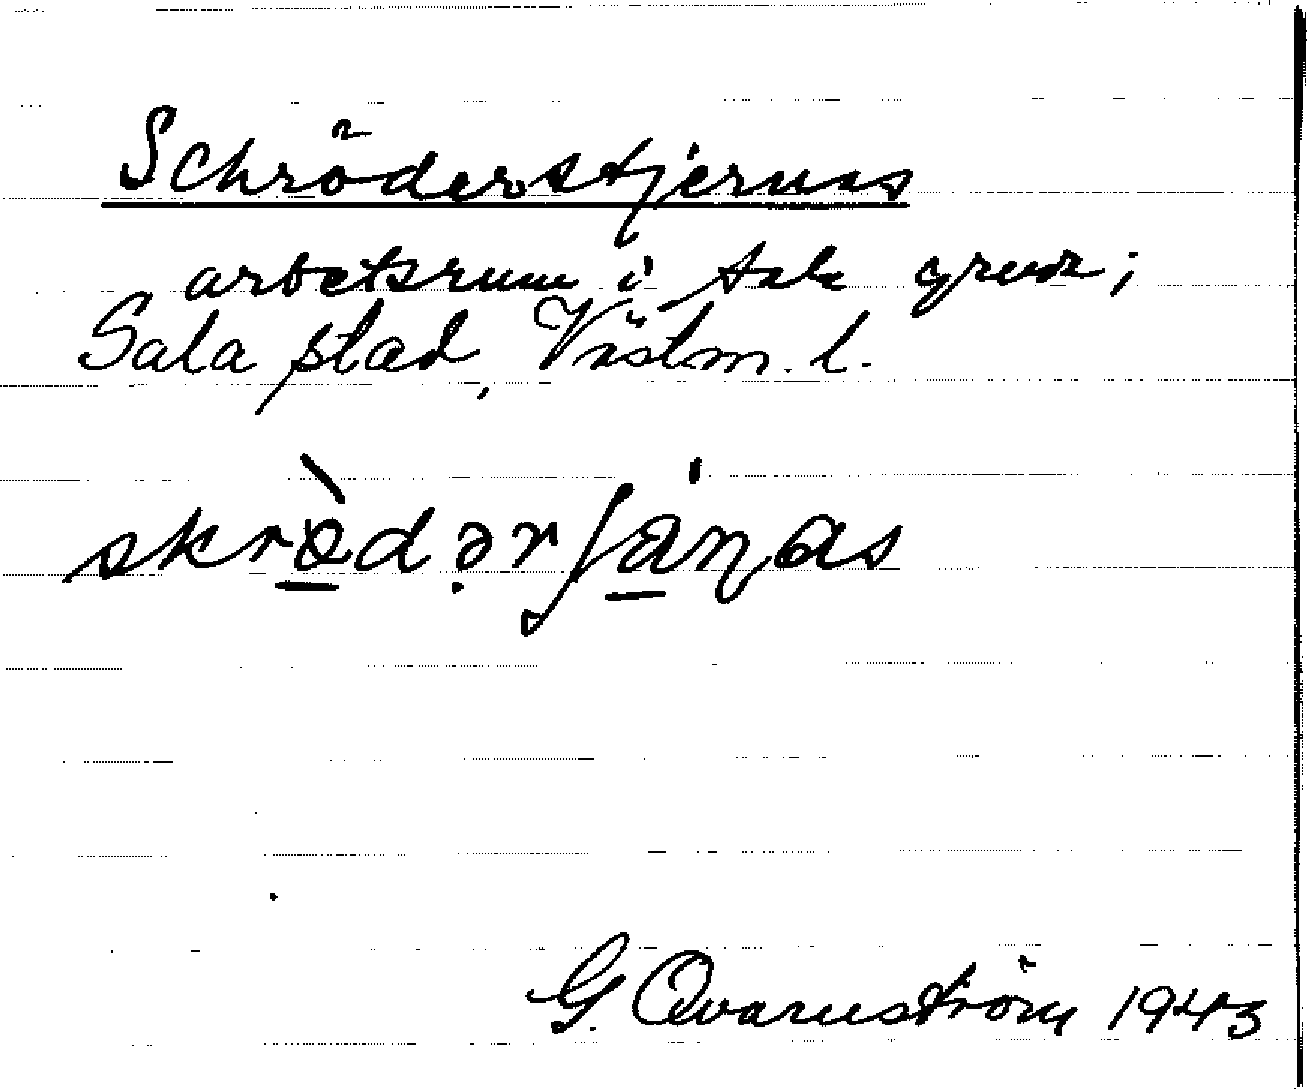 Schröderstjernas
arbetsrum i Sala gruva;
Sala stad, Västm. l.
skrö̀dərʃä́ṇas
G. Qvarnström 1943